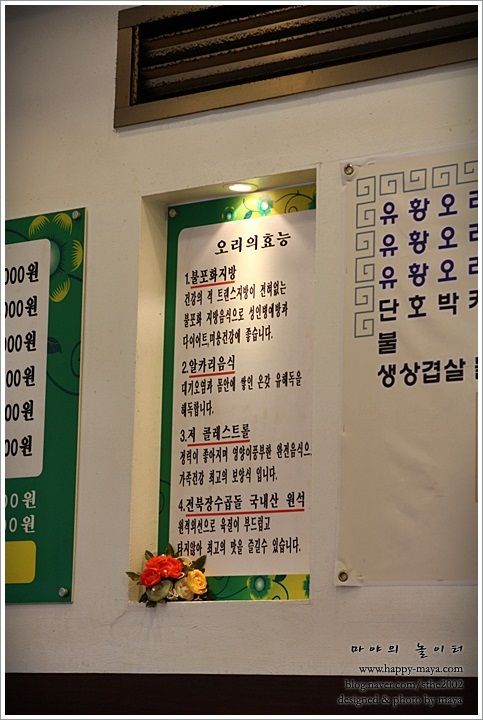 000원
000원
000원
000원
000원
000원
00원
00원
오리의효능
1.불포화지방
건강의 적 트랜스지방이 전혀없는
불포화 지방음식으로 성인병예방과
다이어트,미용건강에 좋습니다.
2.알카리음식
대기오염과 몸안에 쌓인 온갖 유해독을
해독합니다.
3.저 콜레스트롤
정력이 좋아지며 영양이풍부한 완전음식으로
가족건강 최고의 보양식 입니다.
4.전북장수곱돌 국내산 원석
원적외선으로 육질이 부드럽고
타지않아 최고의 맛을 즐길수 있습니다.
유황오리
유황오리
유황오리
단호박
불
생상겹살
마야의 놀이터
www.happy-maya.com
blog.naver.com/sthe2002
designed & photo by maya